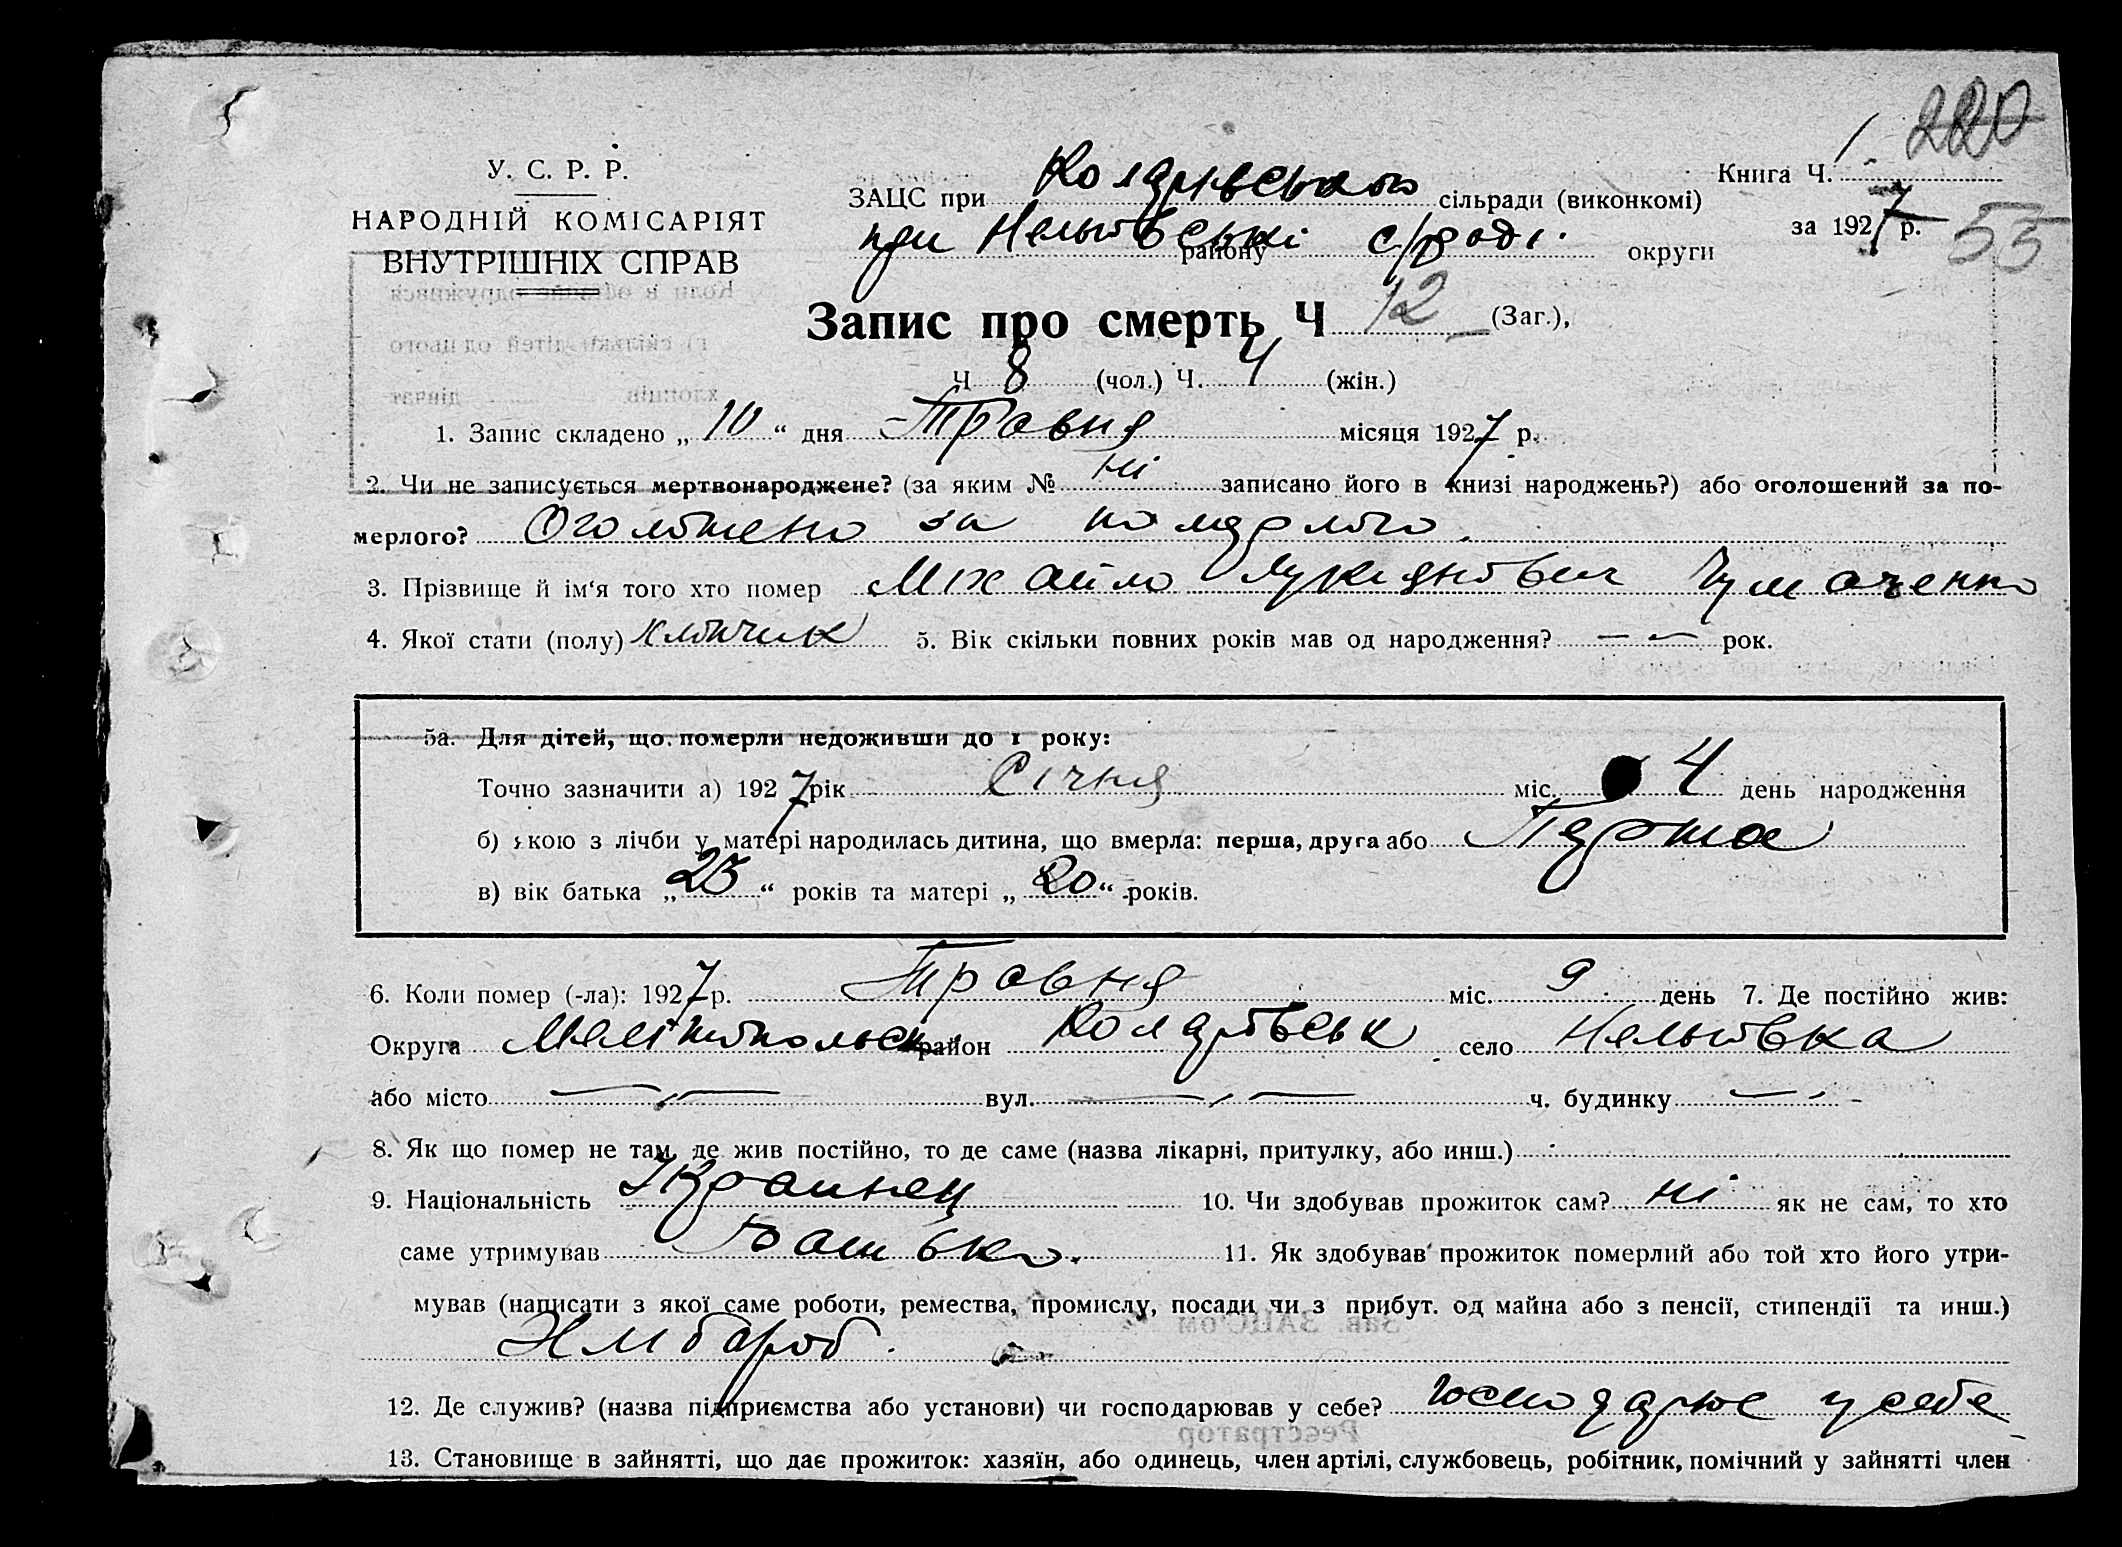 220
У. С. Р. Р.
НАРОДНІЙ КОМІСАРІЯТ
ВНУТРІШНІХ СПРАВ
Книга Ч. 1
за 1927 р. 55
ЗАЦС при сільради (виконкомі)
при району с/раді округи
Запис про смерть Ч 12 (Заг.),
Ч 8 (чол.) Ч. 4 (жін.)
1. Запис складено „ 10 “ дня Травня місяця 1927 р.
2. Чи не записується мертвонароджене? (за яким № ні записано його в книзі народжень?) або оголошений за по-
мерлого? Оголошено за померлого.
3. Прізвище й ім‘я того хто помер Міхайло Лукиянович Чумаченко
4. Якої стати (полу) хлопчик 5. Вік скільки повних років мав од народження? — — рок.
5а. Для дітей, що померли недоживши до 1 року:
Точно зазначити а) 1927 рік Січня міс. 4 день народження
б) якою з лічби у матері народилась дитина, що вмерла: перша, друга або Перша
в) вік батька „ 23 “ років та матері „ 20 “ років.
6. Коли помер (-ла): 1927 р. Травня міс. 9 день 7. Де постійно жив:
Округа Меліпопольськ район село Нельговка
або місто — — вул. — — ч. будинку — —
8. Як що помер не там, де жив постійно, то де саме (назва лікарні, притулку, або инш.)
9. Національність Україинец 10. Чи здобував прожиток сам? ні як не сам, то хто
саме утримував Батько. 11. Як здобував прожиток померлий або той хто його утри-
мував (написати з якої саме роботи, ремества, промислу, посади чи з прибут. од майна або з пенсії, стипендії та инш.)
Хлібароб.
12. Де служив? (назва підприємства або установи) чи господарював у себе? господарює у себе
13. Становище в зайнятті, що дає прожиток: хазяїн, або одинець, член артілі, службовець, робітник, помічний у зайнятті член